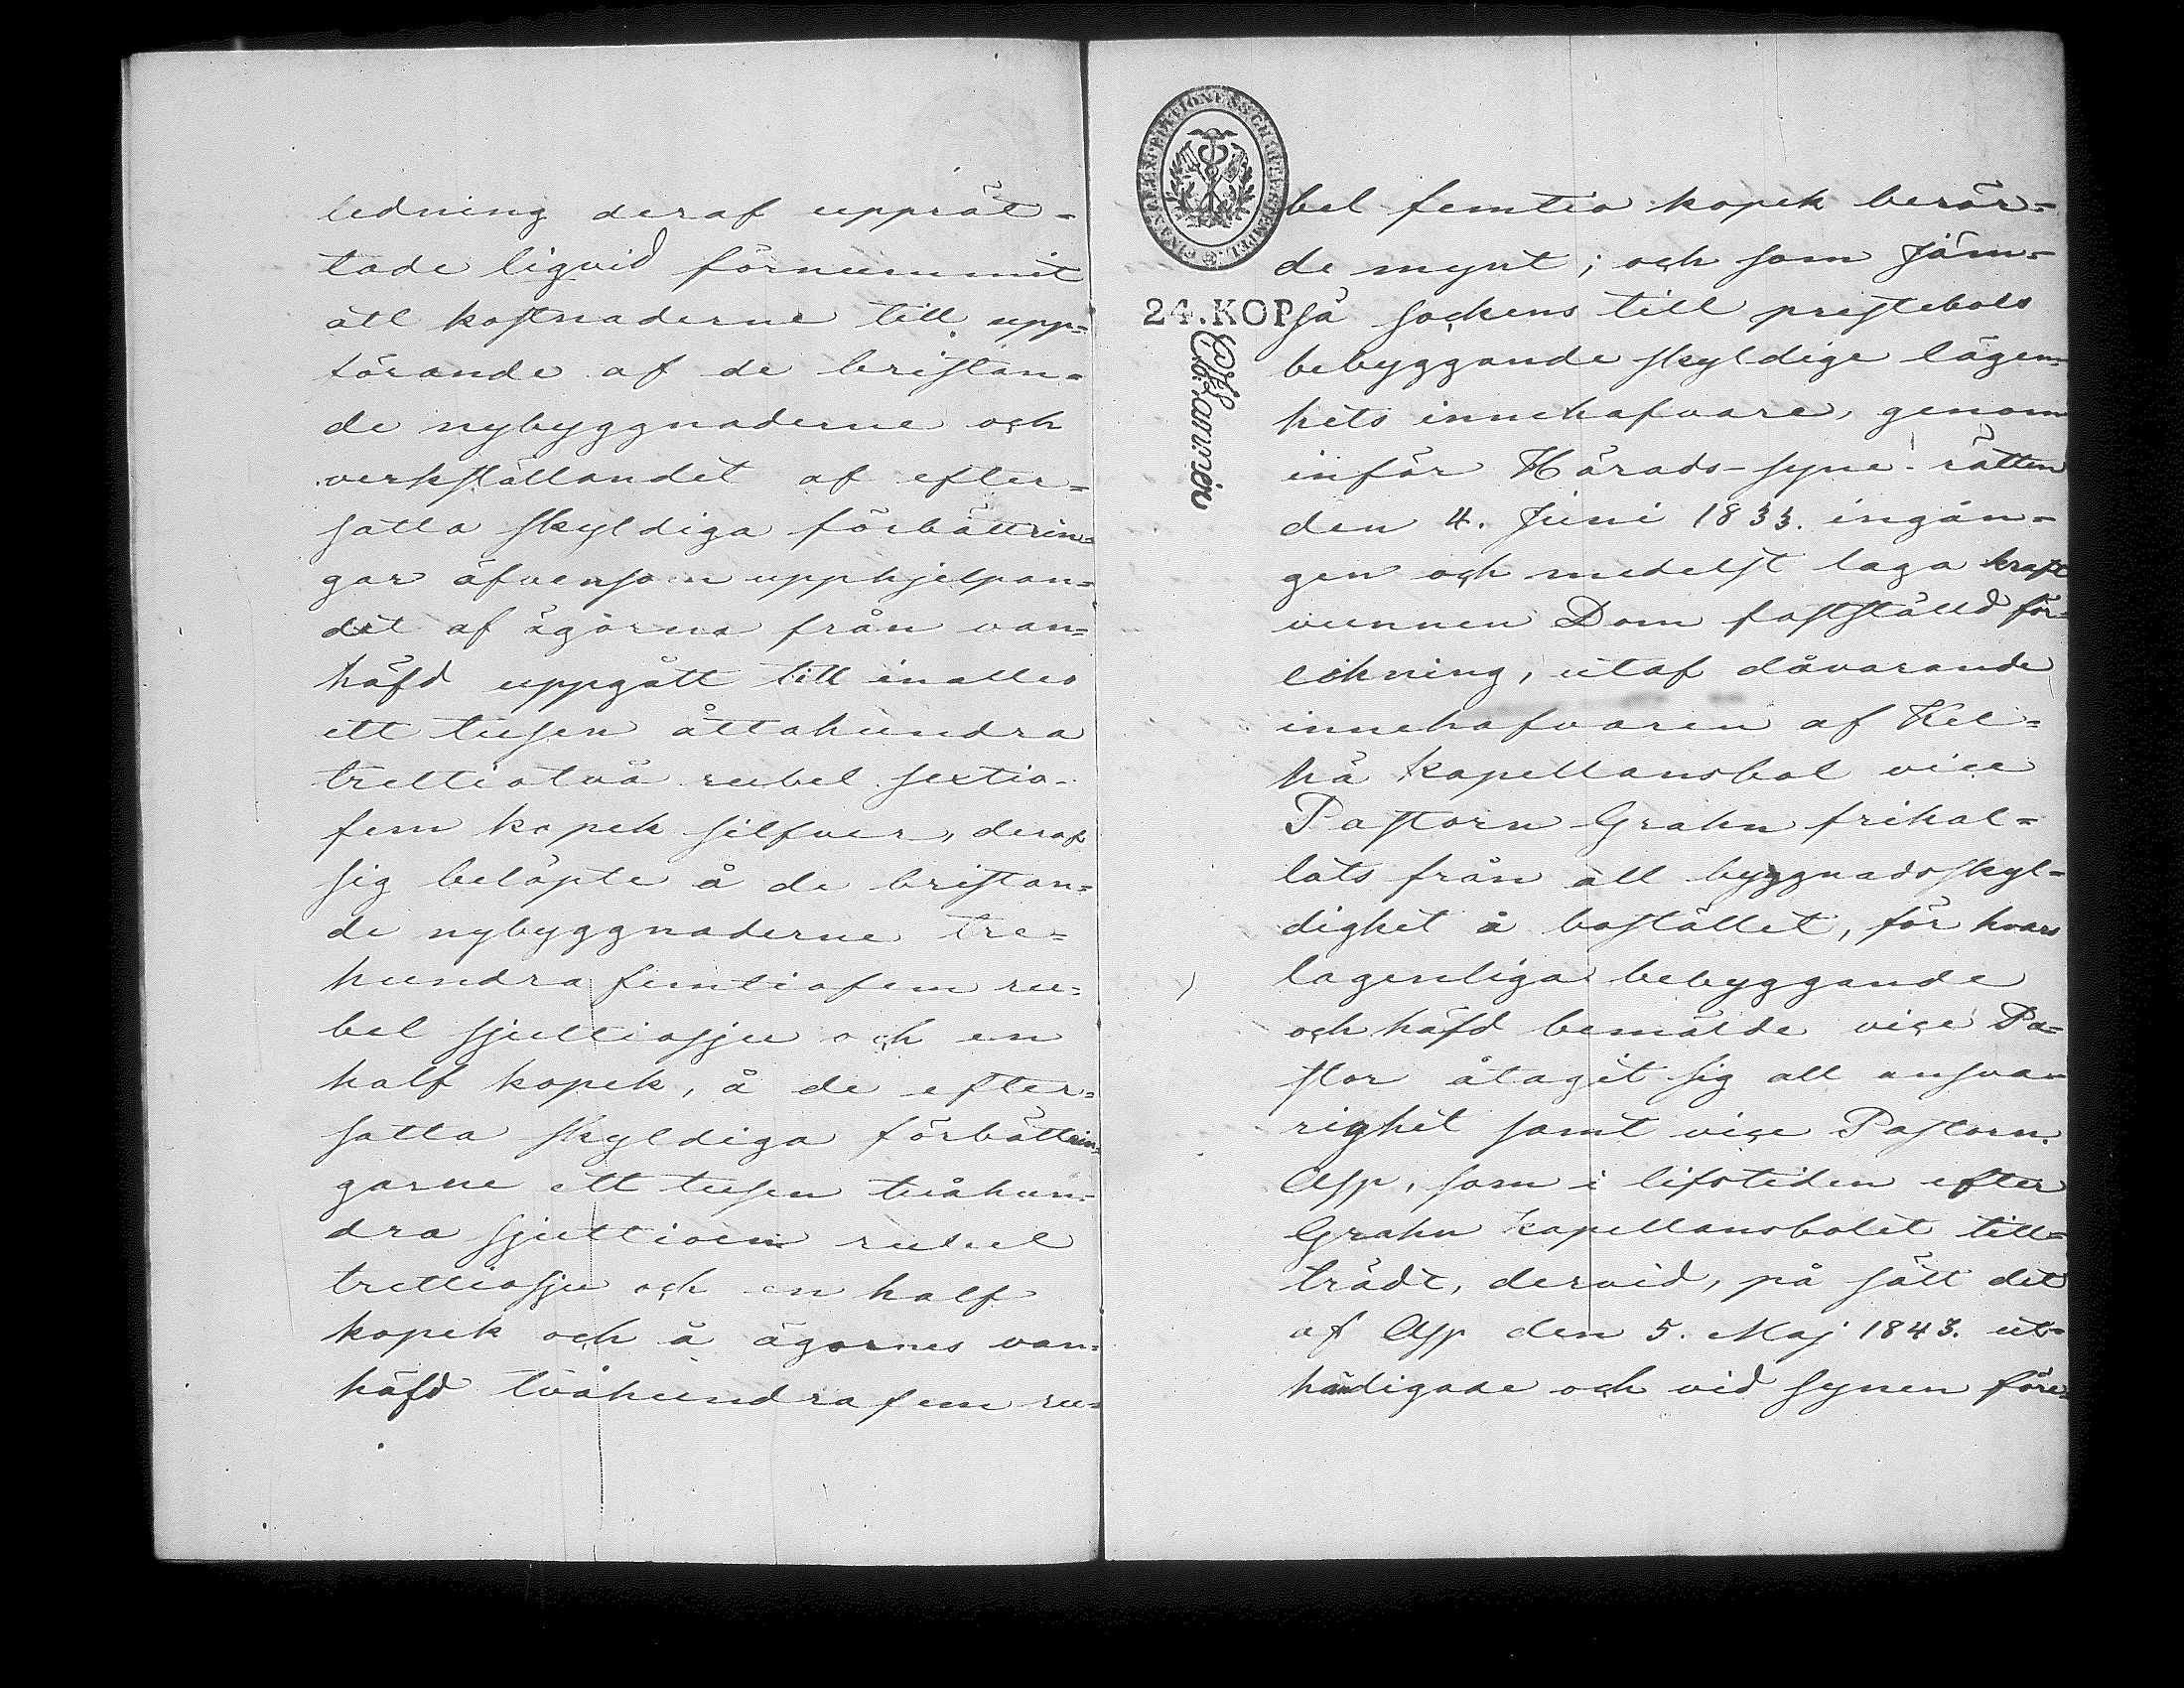 ledning deraf upprät-
tade liqvid förnummit
att kostnaderne till upp-
förande af de bristan-
de nybyggnaderne och
verkställandet af efter-
satta skyldiga förbättrin-
gar äfvensom upphjelpan-
det af ägorna från van-
häfd uppgått till inalles
ett tusen åttahundra
trettiotvå rubel sextio-
fem kopek silfver, deraf
sig belöpte å de bristan-
de nybyggnaderne tre-
hundra femtiofem ru-
bel sjuttiosju och en
half kopek, å de efter-
satta skyldiga förbättrin-
garne ett tusen tvåhun-
dra sjuttioen rubel
trettiosju och en half
kopek och å ägornes van-
häfd tvåhundrafem ru-
bel femtio kopek berör-
de mynt; och som Jäm-
24. KOP
så sockens till prestebols
bebyggande skyldige lägen-
hets innehafvare, genom
inför Härads-syne-rätten
den 4. Juni 1833. ingån-
gen och medelst laga kraft
vunnen Dom fastställd för-
likning, utaf dåvarande
innehafvaren af Kel-
hä kapellansbol vice
Pastorn Grahn frikal-
lats från all byggnadsskyl-
dighet å bostället, för hvars
lagenliga bebyggande
och häfd bemälde vice Pa-
stor åtagit sig all ansva-
righet samt vice Pastorn
Asp, som i lifstiden efter
Grahn kapellansbolet till-
trädt, dervid, på sätt det
af Asp den 5. Maj 1843. ut-
händigade och vid synen före-